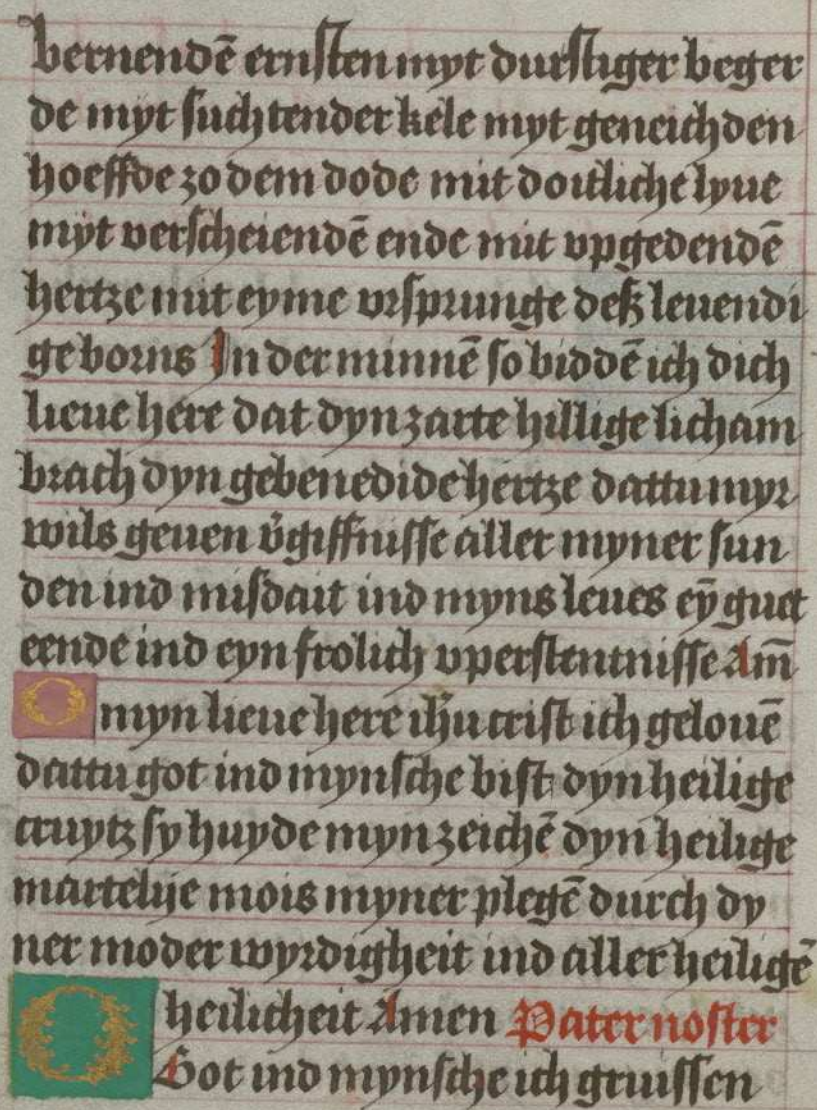 bernendē ernsten myt durstiger beger
de myt suchtender kele myt geneichden
hoeffde zo dem dode mit doitliche lyue
myt verscheiendē ende mit vpgedendē
hertze mit eyme vrsprunge deß leuendi
geborns In der minnē so biddē ich dich
lieue here dat dyn zarte hillige licham
brach dyn gebenedide hertze dattu myr
wils geuen v̄giffnisse aller myner sun
den ind misdait ind myns leues eȳ guet
eende ind eyn frolich vperstentnisse Am̄
O myn lieue here ihū crist ich gelouē
dattu got ind mynsche bist dyn heilige
cruytz sy huyde myn zeichē dyn heilige
martelije mois myner plegē durch dy
ner moder wyrdigheit ind aller heiligē
heilicheit Amen Pater noster
O Got ind mynsche ich gruissen